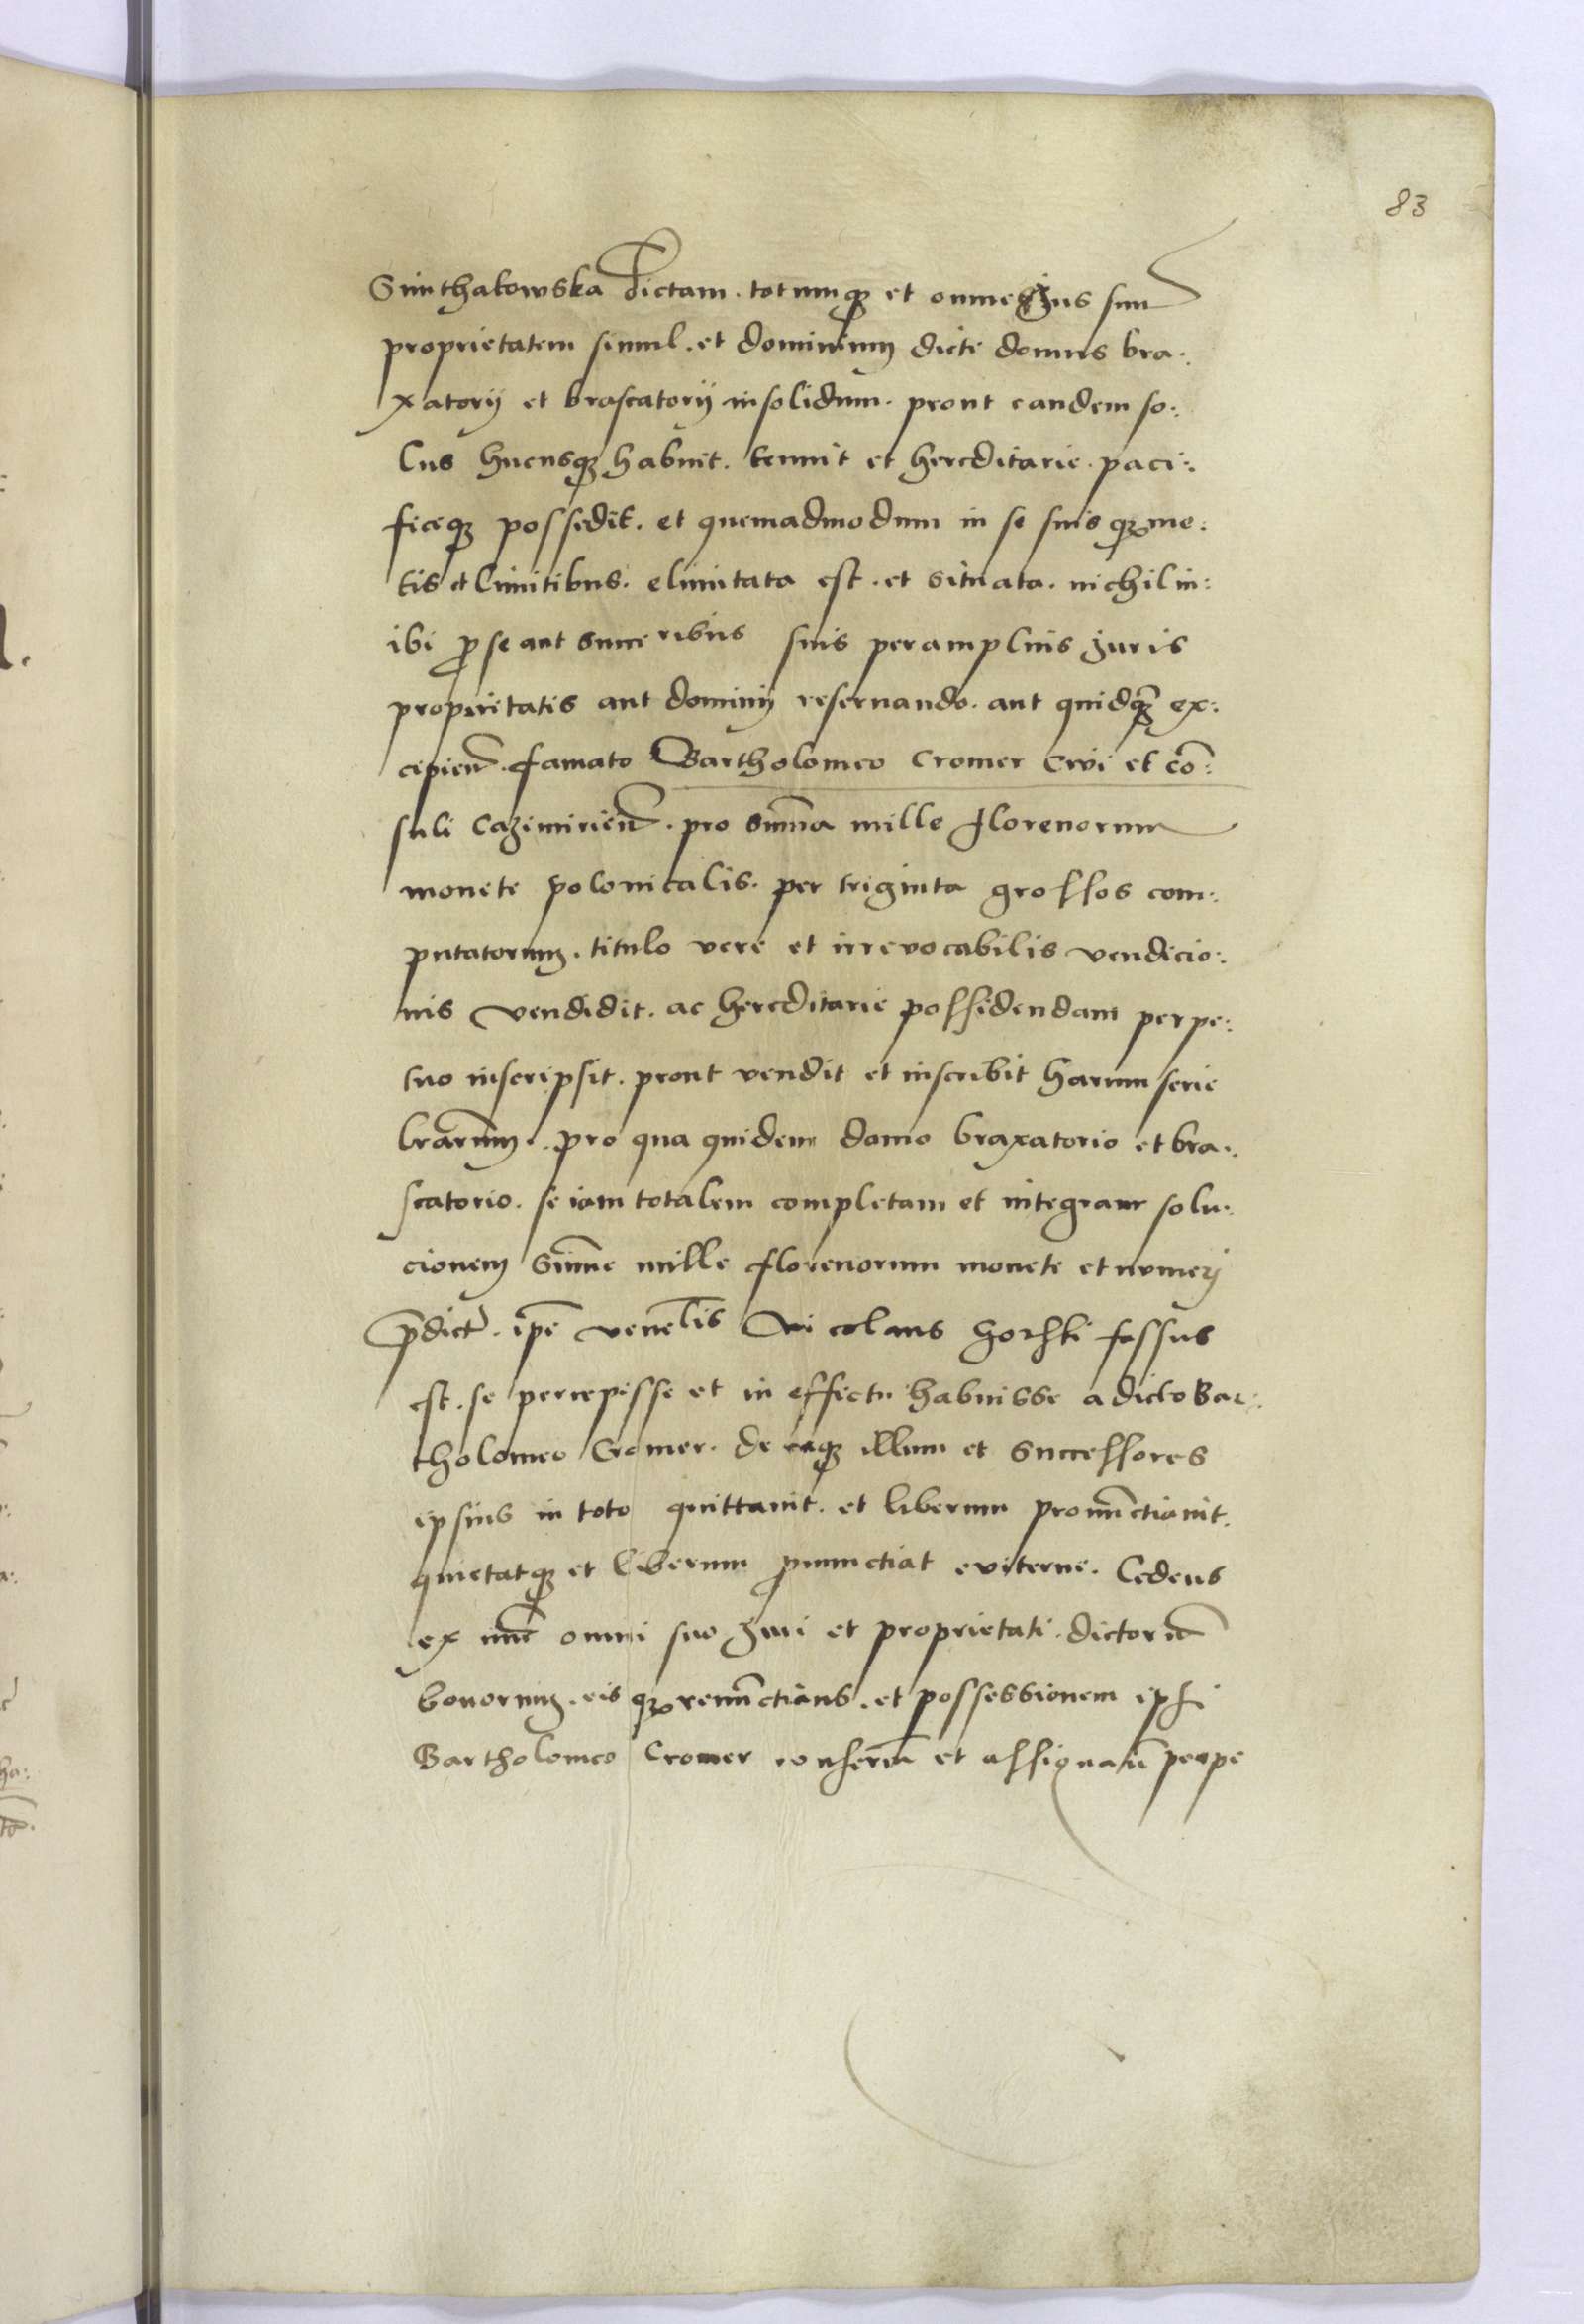 83
Smithakowska dictam. totumq3 et omne Jus suu
proprietatem simul. et dominium dicte domus bra:
xatorij et brascatorij insolidum. prout eandem so:
lus hucusq3 habuit. tenuit et hereditarie. paci:
ficeq3 possedit. et quemadmodum in se suis q3 me:
tis et limitibus. elimitata est. et situata. nichil in:
ibi p se aut succeribus suis peramplius juris
proprietatis aut dominij reservando. aut quidq3 ex:
cipien. famato Bartholomeo Cromer Civi et cō:
suli Cazimirien. pro suma mille florenorum
monete polonicalis. per triginta grossos com:
putatorum. titulo vere et irrevocabilis vendicio:
nis vendidit. ac hereditarie possidendam perpe:
tuo inscripsit. prout vendit et inscribit harum serie
lrarum. pro qua quidem domo braxatorio et bra:
scatorio. se iam totalem completam et integram solu:
cionem summe mille florenorum monete et numerj
pdict. ipe venelis Nicolaus Gorski fassus
est. se percepisse et in effectu habuisse a dicto Bar:
tholomeo Cromer. de eaq3 illum et successores
ipsius in toto quittavit. et liberum pronunctiavit.
quietatq3 et liberum pnunctiat eviterne. Cedens
ex nunc omni suo juri et proprietati. dictorū
bonorum. eis q3 renunctians. et possessionem ipsi
Bartholomeo Cromer conferēn et assignan perpe